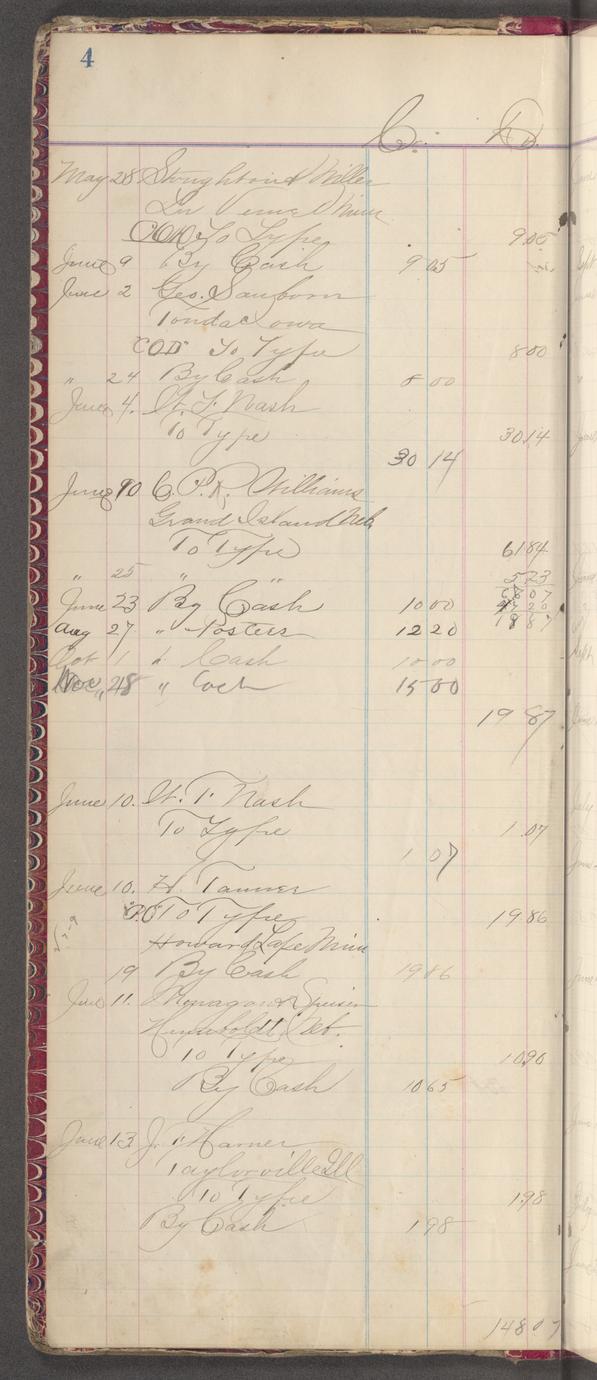 4
Cr. Dr.
May 28 Stoughton & Miller
Lu Verne Minn
COD To Type 9 05
June 9 By Cash 9 05
June 2 Geo. Sanborn
Fonda Iowa
COD To Type 8 00
" 24 By Cash 8 00
June 4. W. F. Nash
To Type 30 14
30 14
June 10 C. P. R. Williams
Grand Island Neb
To Type 61 84
" 25 " " 5 23
68 07
June 23 By Cash 10 00 47 20
Aug 27 " Posters 12 20 19 87
Oct 1 " Cash 10 00
Nov 28 " Cash 15 00
19 87
June 10. W. F. Nash
To Type 1 07
1 07
June 10. H. Tanner
To Type 19 86
Howard Lake Minn
19 By Cash 19 86
June 11.
Humboldt, Neb.
To Type 10 90
By Cash 10 65
June 13 J. F. Harner
Taylorville Ill
To Type 1 98
By Cash 1 98
148 07